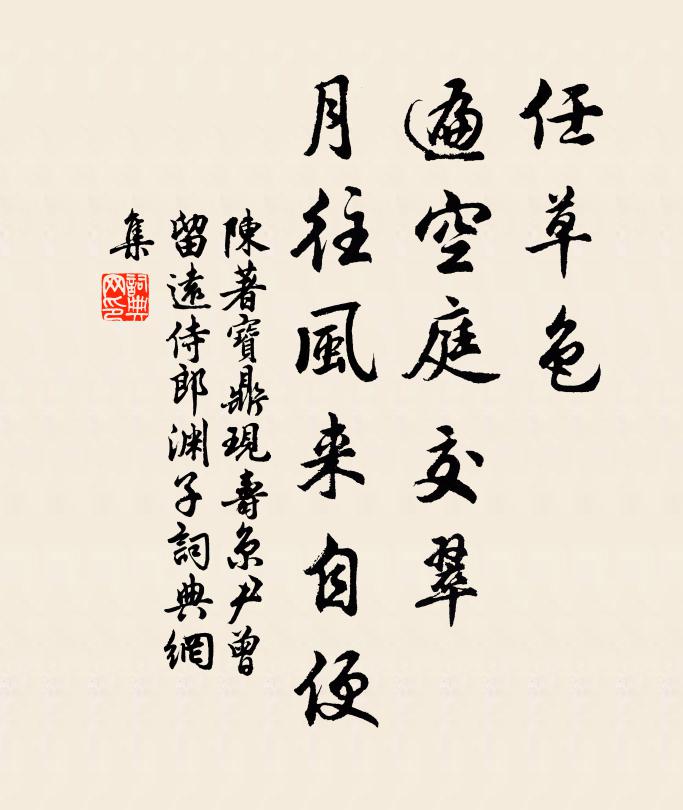 任草色
遍空庭交翠
月往風来自便
陳著寶鼎現壽京尹曾
留遠侍郎淵子詞典網
集
詞典
网印